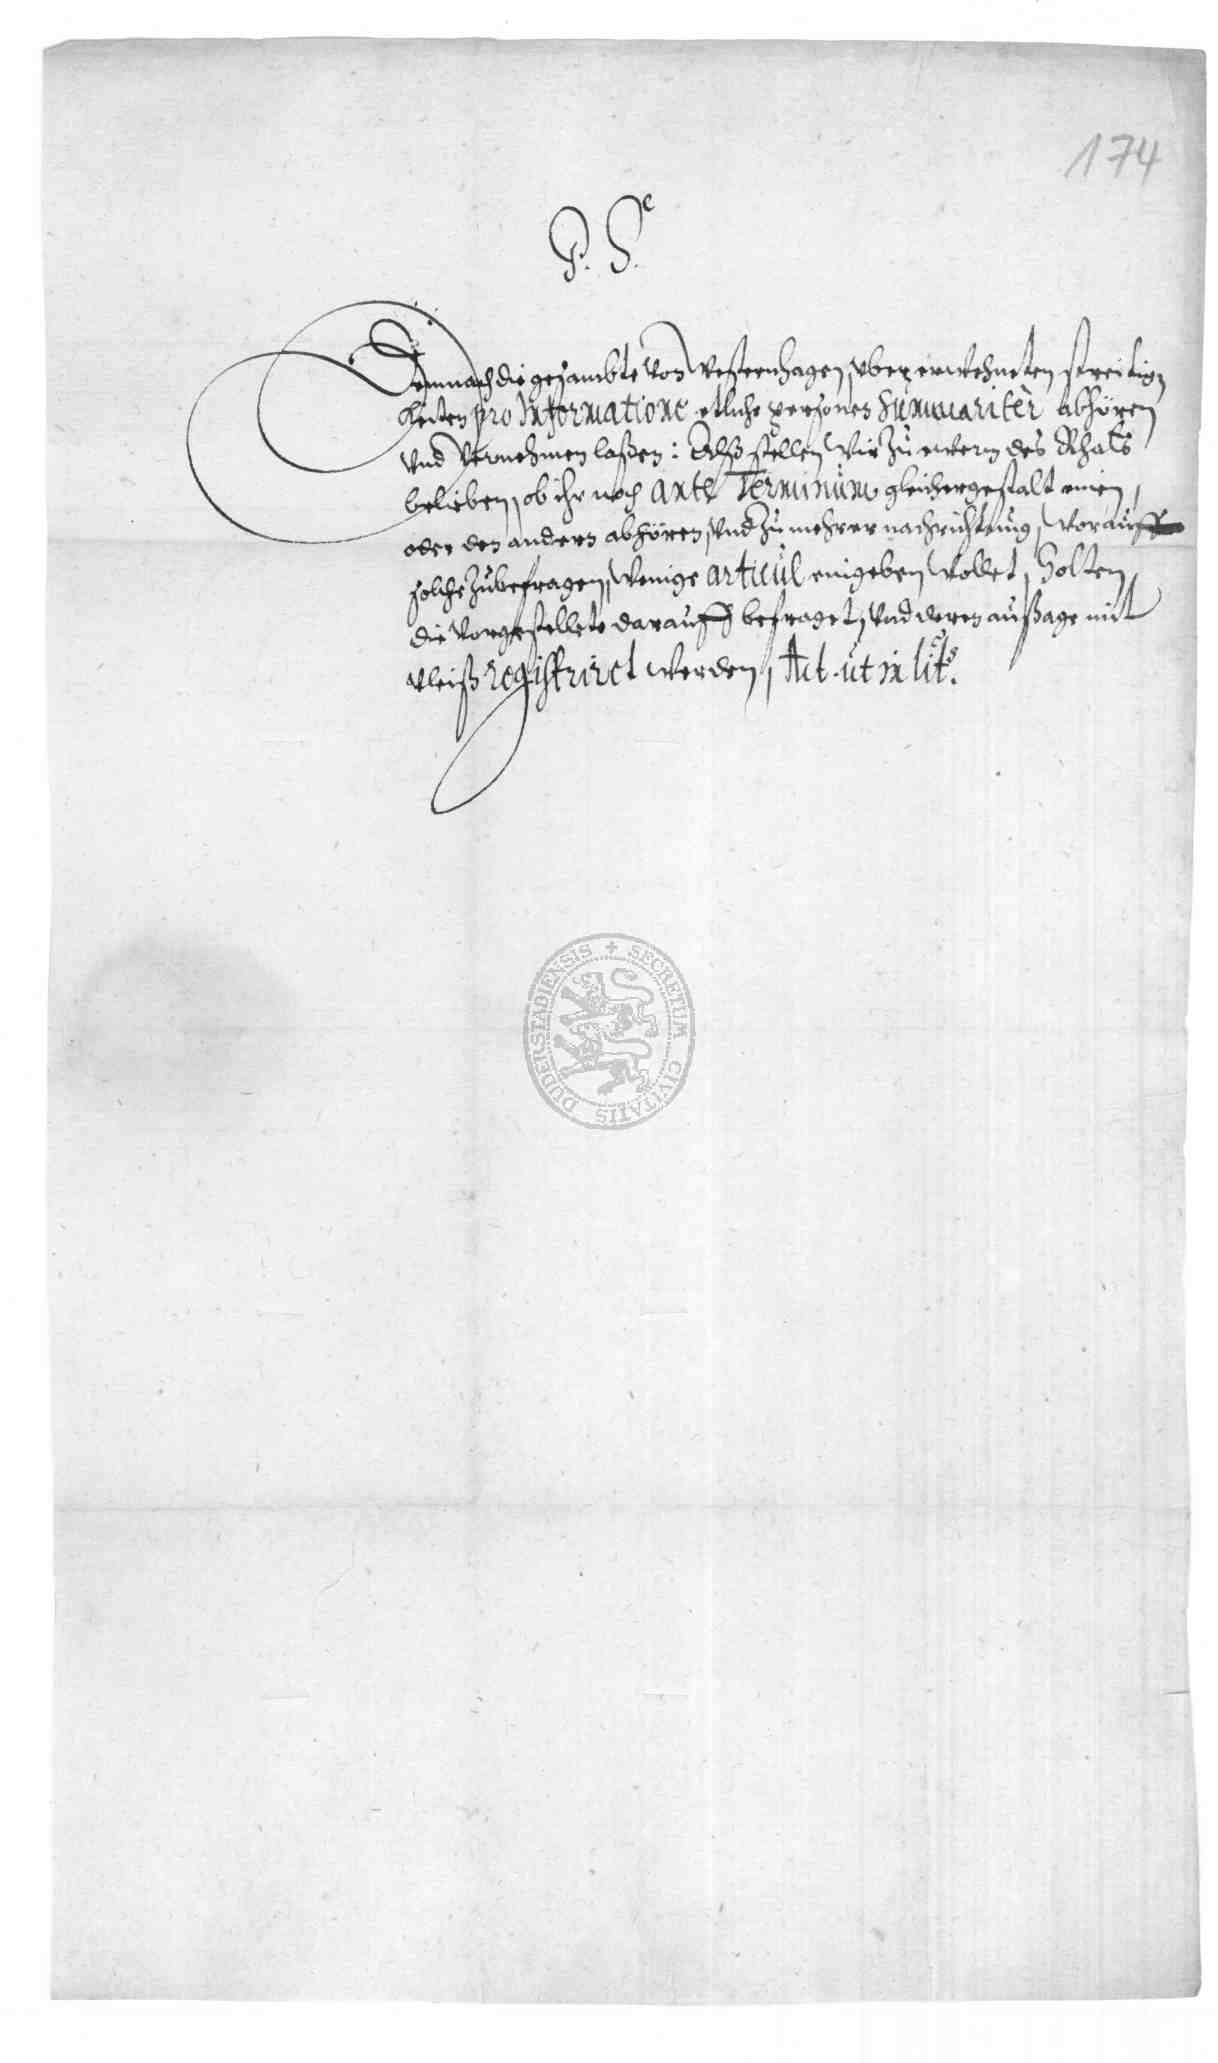 174
P. S.
Demnach die gesambte von Westernhagen, vber erwehneten streitig,
keiten pro Informatione etliche personen summariter abhören
vnd vernehmen laßen: Alß stellen wir zu ewerm des Rhats
belieben, ob ihr noch ante Terminum gleichergestalt einen,
oder den andern abhören, vnd zu mehrer nachrichtung, worauff
solche zubefragen, wenige articul eingeben wollet, Solten,
die vorgestellete darauff befraget, vnd deren außage mit
vleiß registriret werden, Act. ut in lits.
SECRETUM CIVITATIS DUDERSTADIENSIS